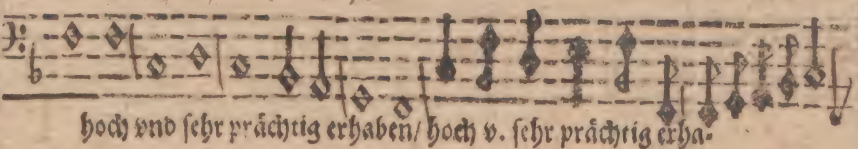 hoch vnd ſehr prächtig erhaben/ hoch v. ſehr prächtig erha-